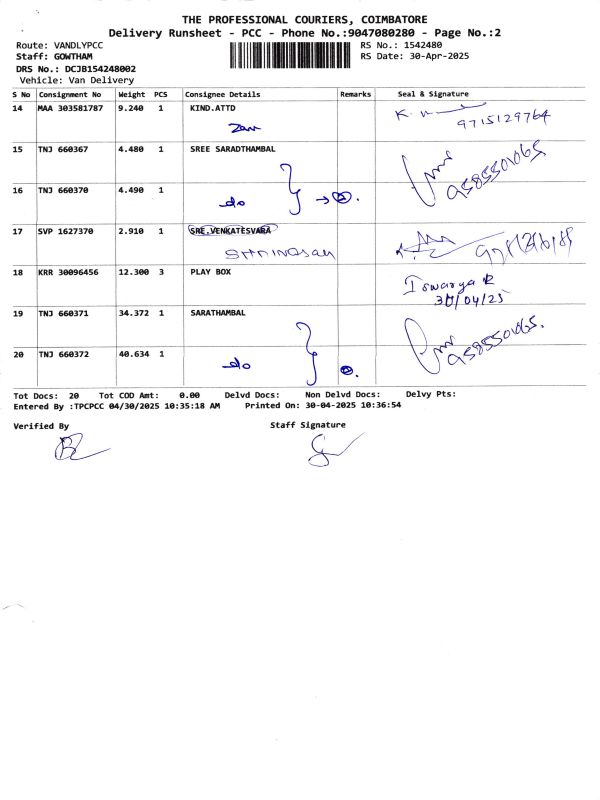 THE PROFESSIONAL COURIERS, COIMBATORE
Delivery Runsheet - PCC - Phone No.:9047080280 - Page No.:2
Route: VANDLYPCC RS No.: 1542480
Staff: GOWTHAM RS Date: 30-Apr-2025
DRS No.: DCJB154248002
Vehicle: Van Delivery
S No Consignment No Weight PCS Consignee Details Remarks Seal & Signature
14 MAA 303581787 9.240 1 KIND.ATTD
9715129764
15 TNJ 660367 4.480 1 SREE SARADTHAMBAL
9585501065
16 TNJ 660370 4.490 1
do
17 SVP 1627370 2.910 1 SRE.VENKATESVARA
Srinivasan
18 KRR 30096456 12.300 3 PLAY BOX
Iswarya R
30/04/25
19 TNJ 660371 34.372 1 SARATHAMBAL
9585501065.
20 TNJ 660372 40.634 1
do
Tot Docs: 20 Tot COD Amt: 0.00 Delvd Docs: Non Delvd Docs: Delvy Pts:
Entered By :TPCPCC 04/30/2025 10:35:18 AM Printed On: 30-04-2025 10:36:54
Verified By Staff Signature